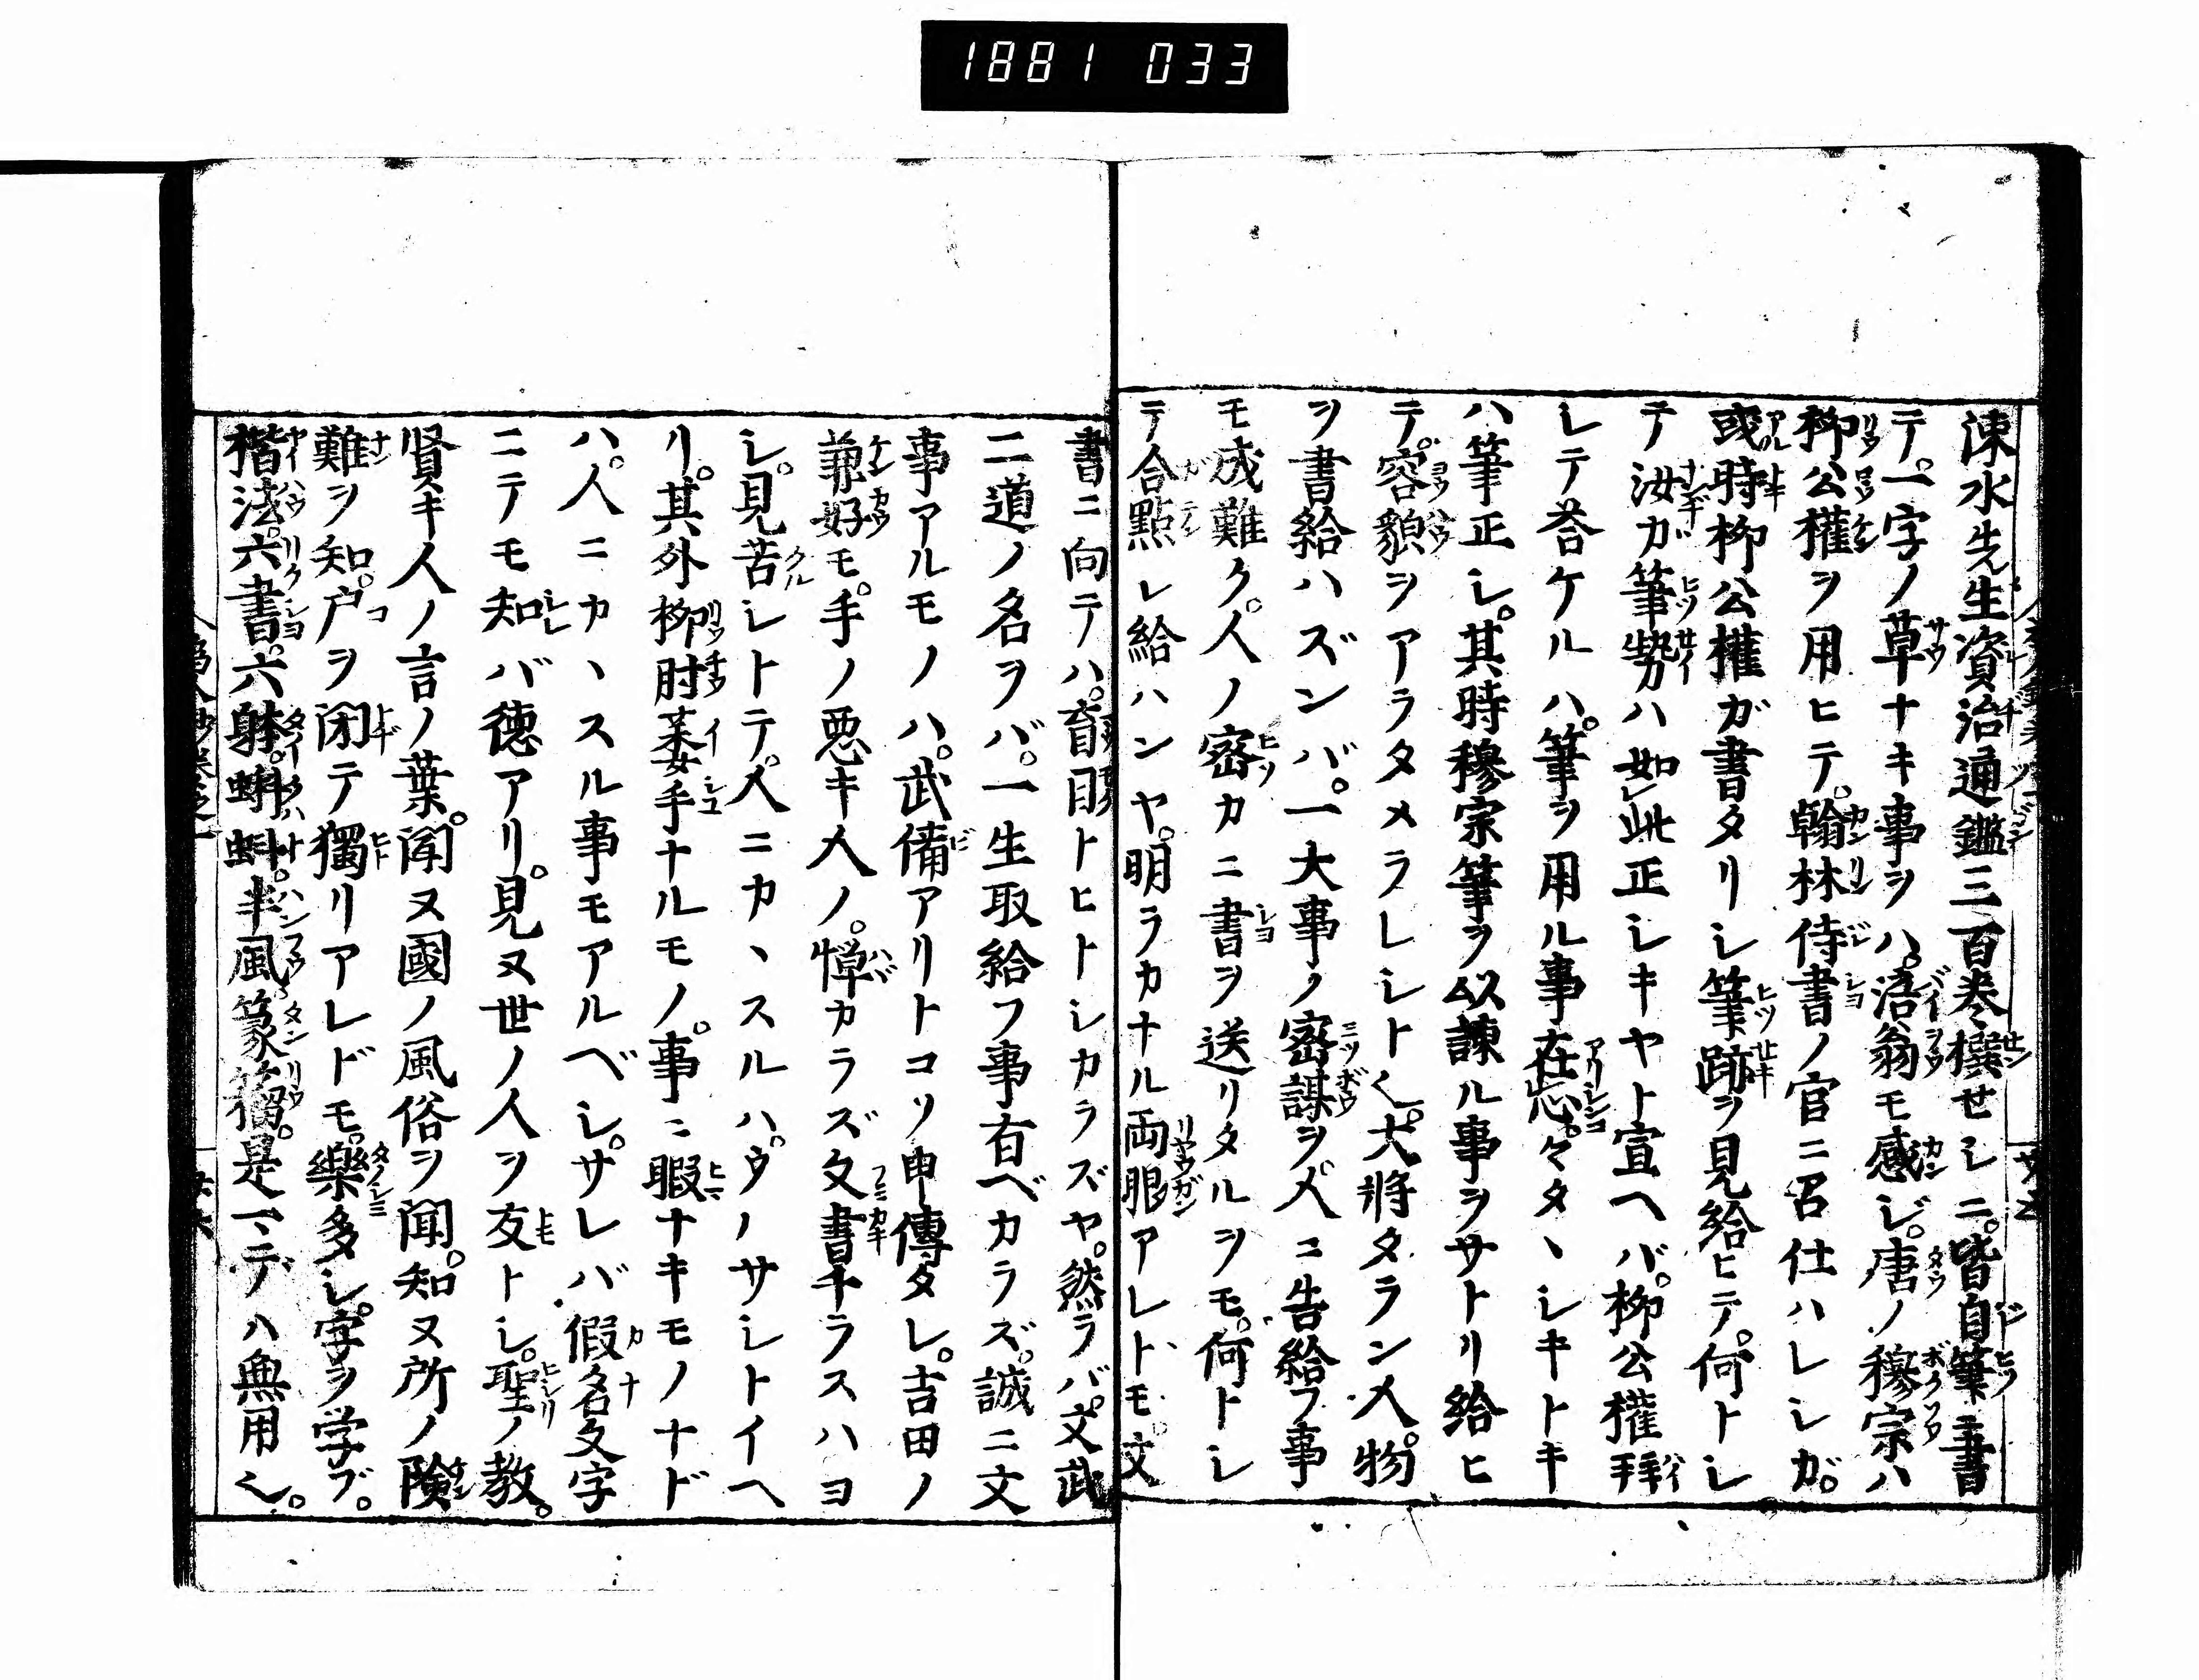 1881 033
涑水先生資治通鑑三百巻撰セシニ。皆自筆ニ書
テ。一字ノ草ナキ事ヲハ。涪翁モ感ジ。唐ノ穆宗ハ
栁公權ヲ用ヒテ。翰林侍書ノ官ニ召仕ハレシガ。
或時栁公權ガ書タリシ筆跡ヲ見給ヒテ。何トシ
テ汝ガ筆勢ハ如此正シキヤト宣ヘバ。栁公權拜
シテ荅ケルハ。筆ヲ用ル事在心。々タヽシキトキ
ハ筆正シ。其時穆宗筆ヲ以諫ル事ヲサトリ給ヒ
テ。容貌ヲアラタメラレシト〱。大将タラン人。物
ヲ書給ハズンバ。一大事ノ密謀ヲ人ニ告給フ事
モ成難ク。人ノ密カニ書ヲ送リタルヲモ。何トシ
テ合點シ給ハンヤ。明ラカナル両眼アレトモ。文
書ニ向テハ。盲目トヒトシカラズヤ。然ラバ。文武
二道ノ名ヲバ。一生取給フ事有ベカラズ。誠ニ文
事アルモノハ。武備アリトコソ申傳タレ。吉田ノ
兼好モ。手ノ悪キ人ノ。憚カラズ文書チラスハヨ
シ。見苦シトテ。人ニカヽスルハ。ウノサシトイヘ
リ。其外栁肘萎手ナルモノ。事ニ暇ナキモノナド
ハ。人ニカヽスル事モアルベシ。サレバ假名文字
ニテモ知バ徳アリ。見ヌ世ノ人ヲ友トシ。聖ノ教。
賢キ人ノ言ノ葉。聞ヌ國ノ風俗ヲ聞。知ヌ所ノ険
難ヲ知。戸ヲ閉テ獨リアレドモ。樂多シ。字ヲ学ブ。
楷法。六書。六躰。蝌蚪。半風。篆籀。是一、デハ無用〱。